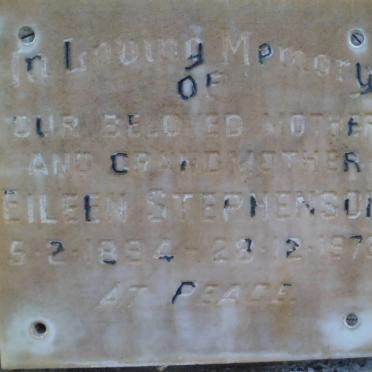 In Loving Memory
OF
OUR BELOVED MOTHER
AND GRANDMOTHER
EILEEN STEPHENSON
5·2·1894 - 29·12·1978
AT PEACE.